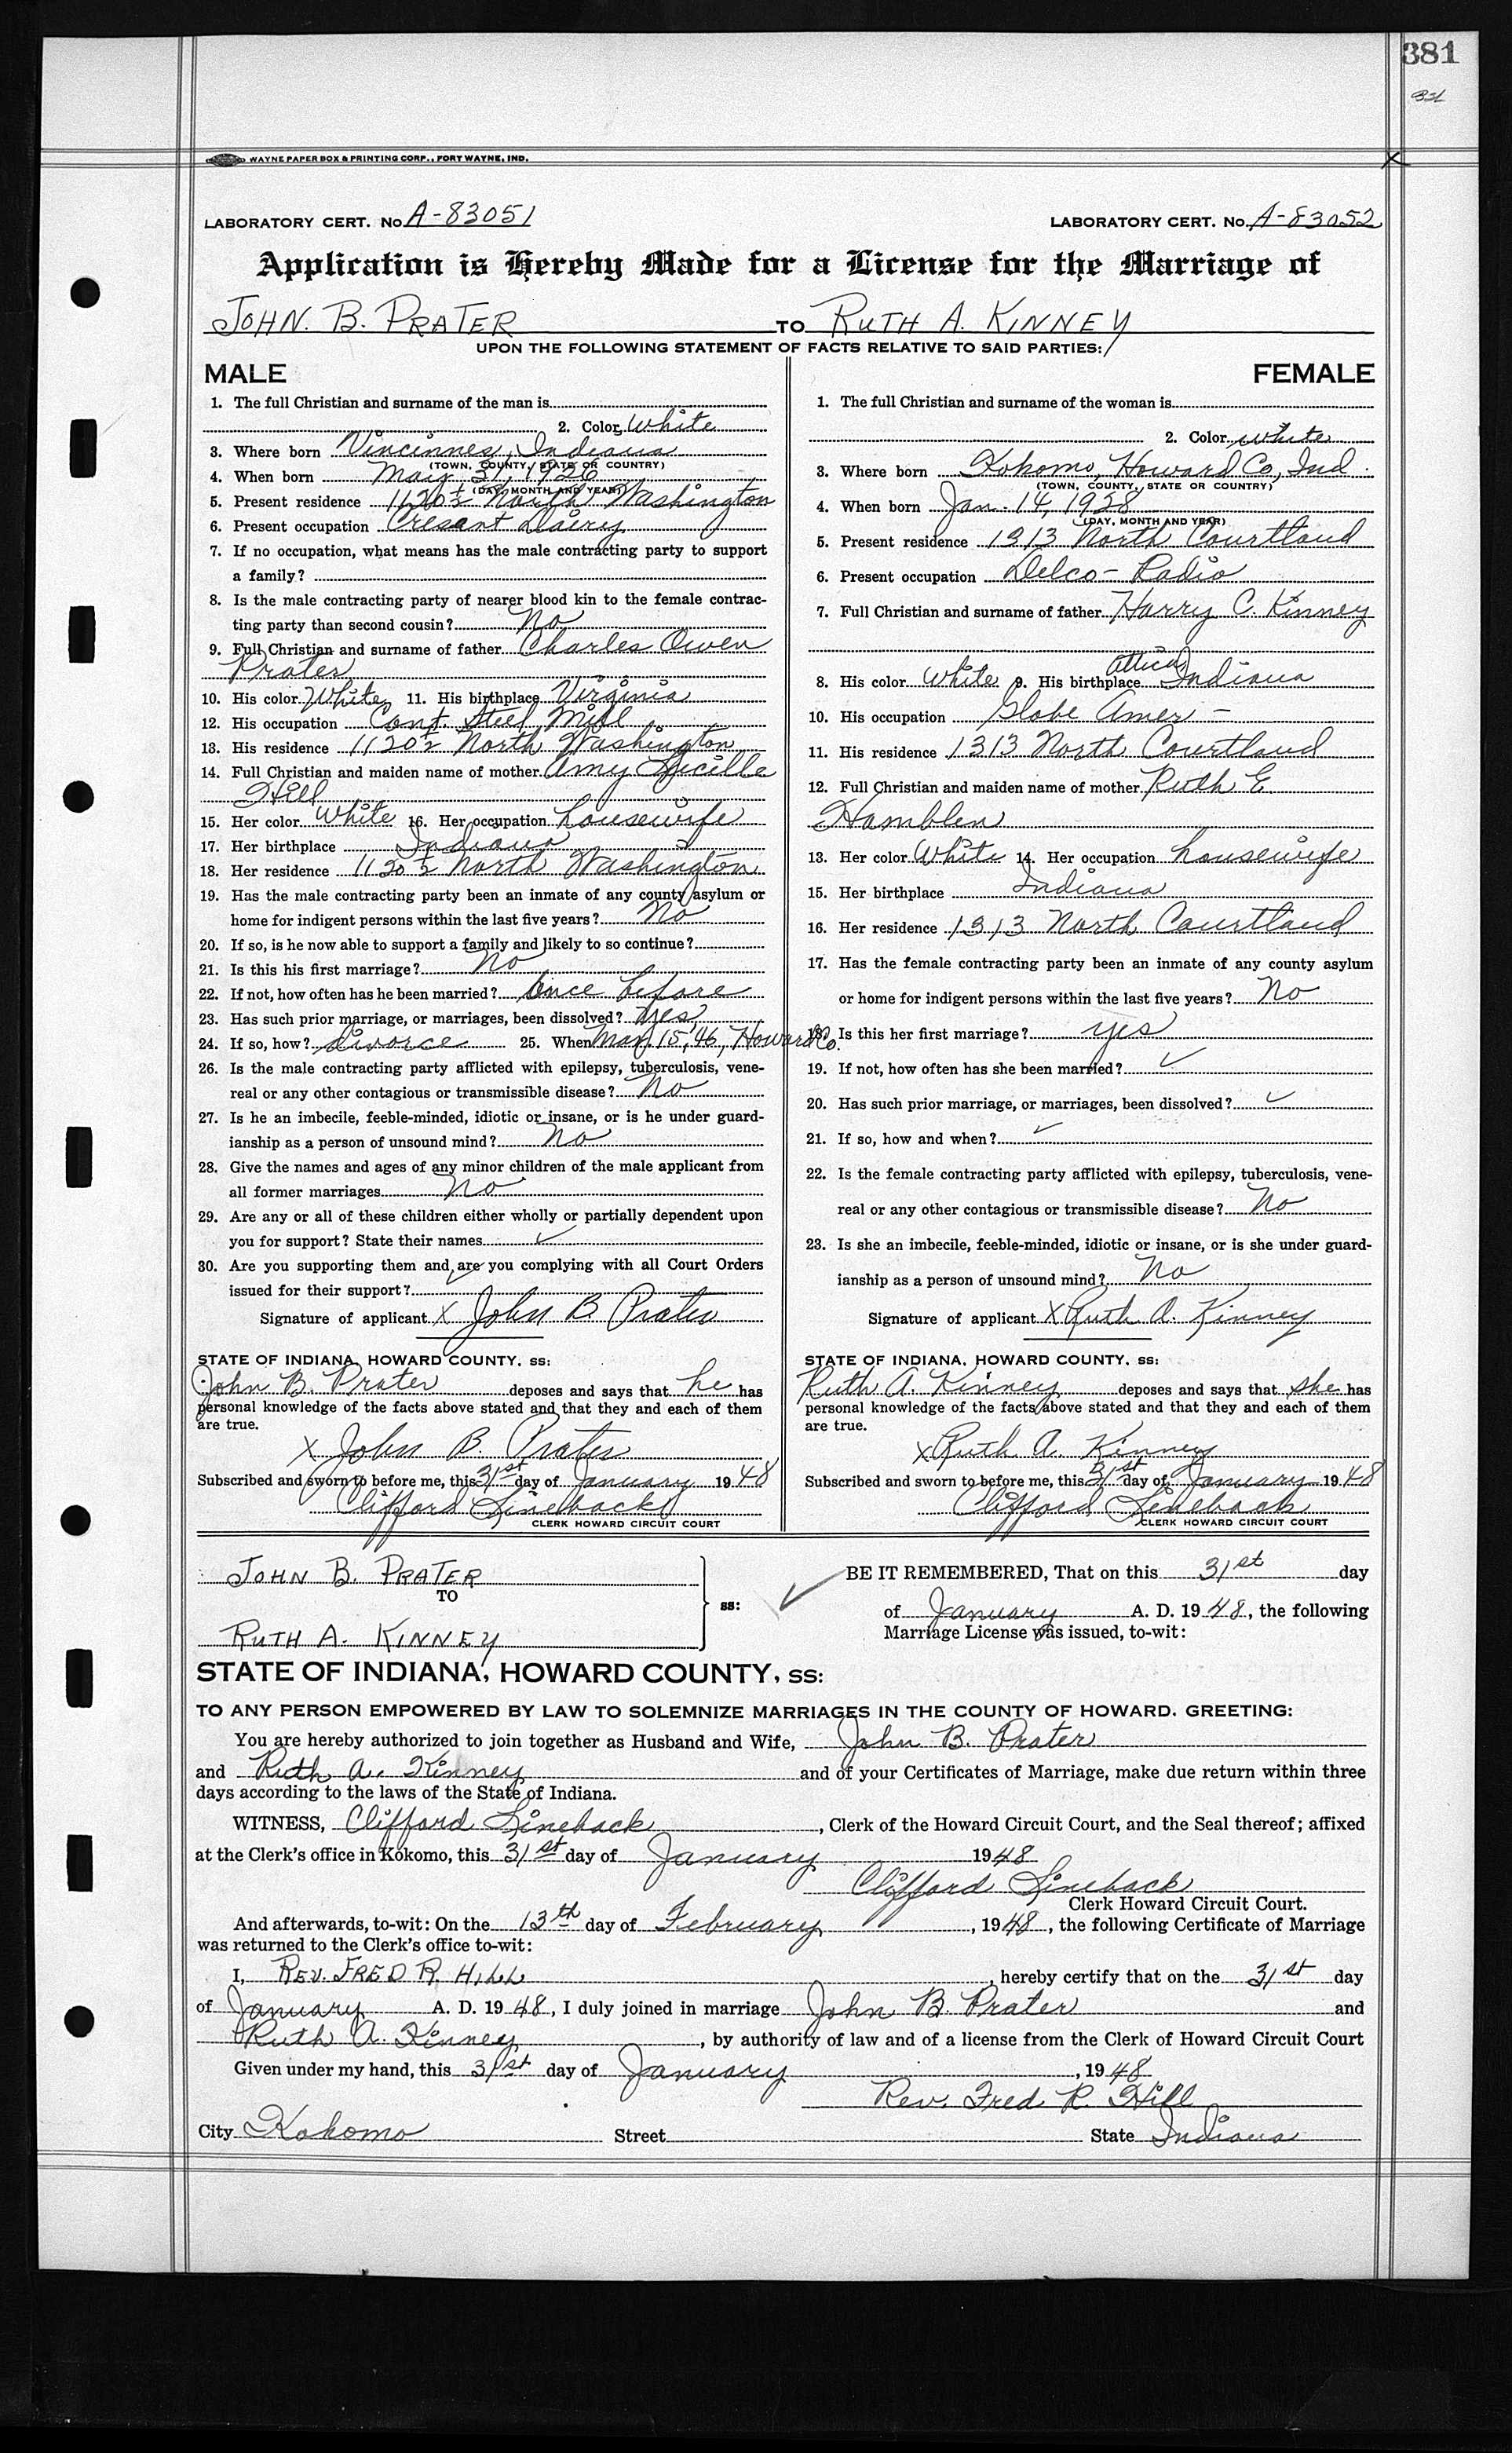 381
WAYNE PAPER BOX & PRINTING CORP., FORT WAYNE, IND.
LABORATORY CERT. No. A-83051 LABORATORY CERT. No. A-83052
Application is Hereby Made for a License for the Marriage of
JOHN. B. PRATER TO RUTH A. KINNEY
UPON THE FOLLOWING STATEMENT OF FACTS RELATIVE TO SAID PARTIES:
MALE
1. The full Christian and surname of the man is
2. Color White
3. Where born Vincinnes, Indiana
(TOWN, COUNTY, STATE OR COUNTRY)
4. When born May 31, 1926
(DAY, MONTH AND YEAR)
5. Present residence 1120½ North Washington
6. Present occupation Cresant Dairy
7. If no occupation, what means has the male contracting party to support
a family?
8. Is the male contracting party of nearer blood kin to the female contrac-
ting party than second cousin? No
9. Full Christian and surname of father Charles Owen
Prater
10. His color White 11. His birthplace Virginia
12. His occupation Cont. Steel Mill
13. His residence 1120½ North Washington
14. Full Christian and maiden name of mother Amy Lucille
Hill
15. Her color White 16. Her occupation housewife
17. Her birthplace Indiana
18. Her residence 1120½ North Washington
19. Has the male contracting party been an inmate of any county asylum or
home for indigent persons within the last five years? No
20. If so, is he now able to support a family and likely to so continue?
21. Is this his first marriage? No
22. If not, how often has he been married? Once before
23. Has such prior marriage, or marriages, been dissolved? Yes
24. If so, how? divorce 25. When May. 15, '46, Howard Co.
26. Is the male contracting party afflicted with epilepsy, tuberculosis, vene-
real or any other contagious or transmissible disease? No
27. Is he an imbecile, feeble-minded, idiotic or insane, or is he under guard-
ianship as a person of unsound mind? No
28. Give the names and ages of any minor children of the male applicant from
all former marriages No
29. Are any or all of these children either wholly or partially dependent upon
you for support? State their names ✓
30. Are you supporting them and are you complying with all Court Orders
issued for their support? ✓
Signature of applicant X John B Prater
STATE OF INDIANA, HOWARD COUNTY, ss:
John B. Prater deposes and says that he has
personal knowledge of the facts above stated and that they and each of them
are true.
X John B. Prater
Subscribed and sworn to before me, this 31st day of January 1948
Clifford Lineback
CLERK HOWARD CIRCUIT COURT
FEMALE
1. The full Christian and surname of the woman is
2. Color white
3. Where born Kokomo, Howard Co, Ind.
(TOWN, COUNTY, STATE OR COUNTRY)
4. When born Jan. 14, 1928
(DAY, MONTH AND YEAR)
5. Present residence 1313 North Courtland
6. Present occupation Delco-Radio
7. Full Christian and surname of father Harry C. Kinney
8. His color White 9. His birthplace Attica, Indiana
10. His occupation Globe Amer-
11. His residence 1313 North Courtland
12. Full Christian and maiden name of mother Ruth E
Hamblen
13. Her color White 14. Her occupation housewife
15. Her birthplace Indiana
16. Her residence 1313 North Courtland
17. Has the female contracting party been an inmate of any county asylum
or home for indigent persons within the last five years? No
18. Is this her first marriage? yes
19. If not, how often has she been married? ✓
20. Has such prior marriage, or marriages, been dissolved? ✓
21. If so, how and when? ✓
22. Is the female contracting party afflicted with epilepsy, tuberculosis, vene-
real or any other contagious or transmissible disease? No
23. Is she an imbecile, feeble-minded, idiotic or insane, or is she under guard-
ianship as a person of unsound mind? No
Signature of applicant X Ruth A. Kinney
STATE OF INDIANA, HOWARD COUNTY, ss:
Ruth A. Kinney deposes and says that she has
personal knowledge of the facts above stated and that they and each of them
are true.
X Ruth A. Kinney
Subscribed and sworn to before me, this 31st day of January 1948
Clifford Lineback
CLERK HOWARD CIRCUIT COURT
JOHN B. PRATER
TO
RUTH A. KINNEY
ss:
BE IT REMEMBERED, That on this 31st day
of January A. D. 1948, the following
Marriage License was issued, to-wit:
STATE OF INDIANA, HOWARD COUNTY, ss:
TO ANY PERSON EMPOWERED BY LAW TO SOLEMNIZE MARRIAGES IN THE COUNTY OF HOWARD. GREETING:
You are hereby authorized to join together as Husband and Wife, John B. Prater
and Ruth A. Kinney and of your Certificates of Marriage, make due return within three
days according to the laws of the State of Indiana.
WITNESS, Clifford Lineback, Clerk of the Howard Circuit Court, and the Seal thereof; affixed
at the Clerk's office in Kokomo, this 31st day of January 1948
Clifford Lineback
Clerk Howard Circuit Court.
And afterwards, to-wit: On the 13th day of February, 1948, the following Certificate of Marriage
was returned to the Clerk's office to-wit:
I, REV. FRED R. HILL, hereby certify that on the 31st day
of January A. D. 1948, I duly joined in marriage John B. Prater and
Ruth A. Kinney, by authority of law and of a license from the Clerk of Howard Circuit Court
Given under my hand, this 31st day of January, 1948
Rev. Fred R. Hill
City Kokomo Street State Indiana